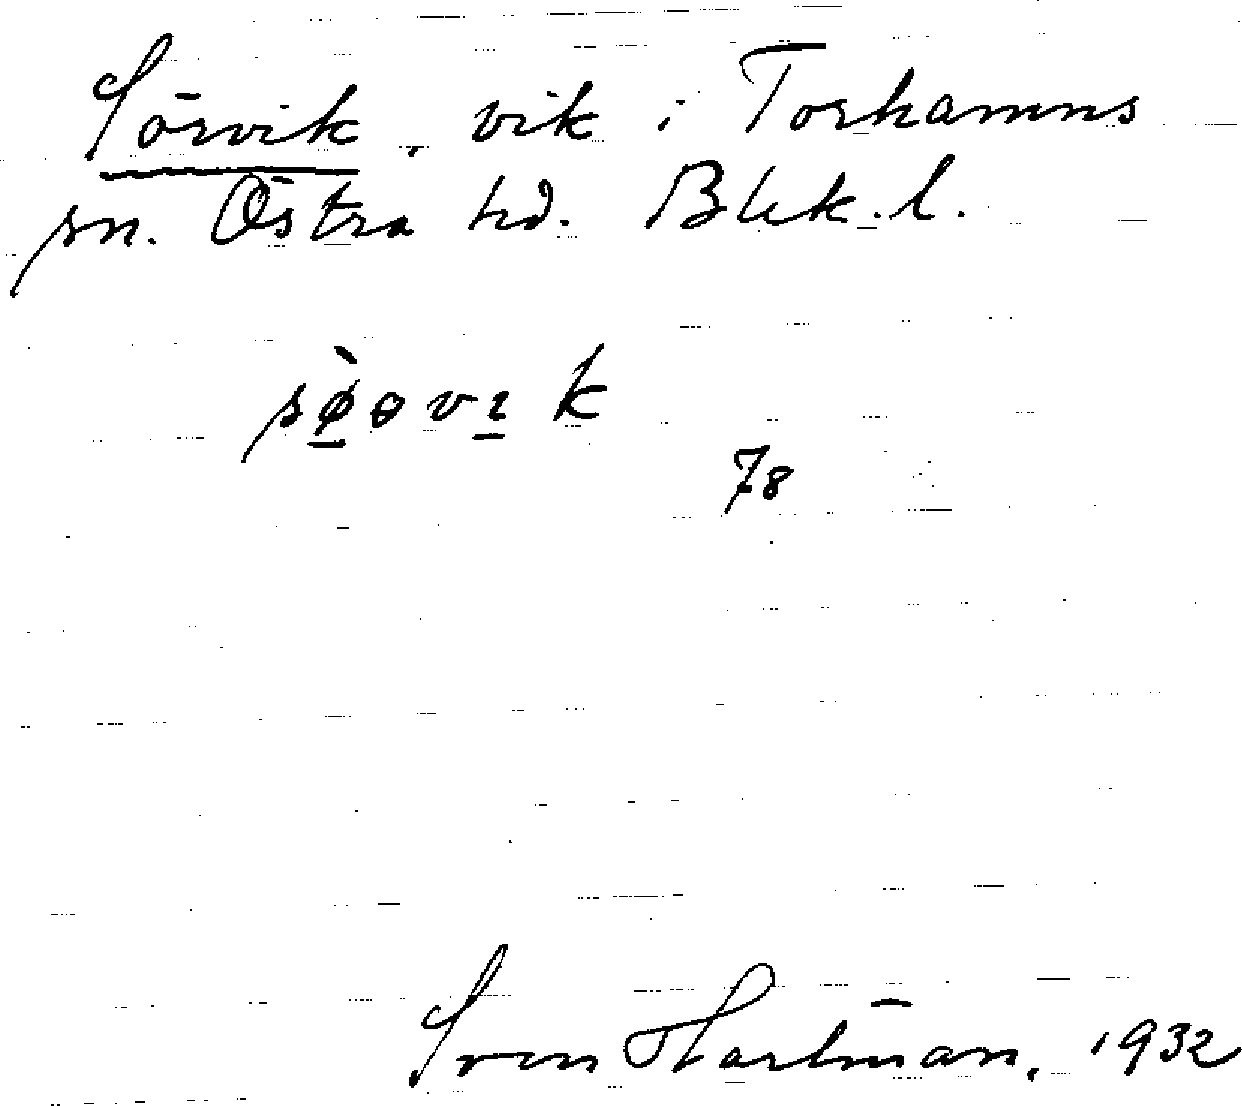 Sörvik, vik i Torhamns
sn. Östra hd. Blek. l.
sø̀ɵvɪk
78
Sven Hartman, 1932